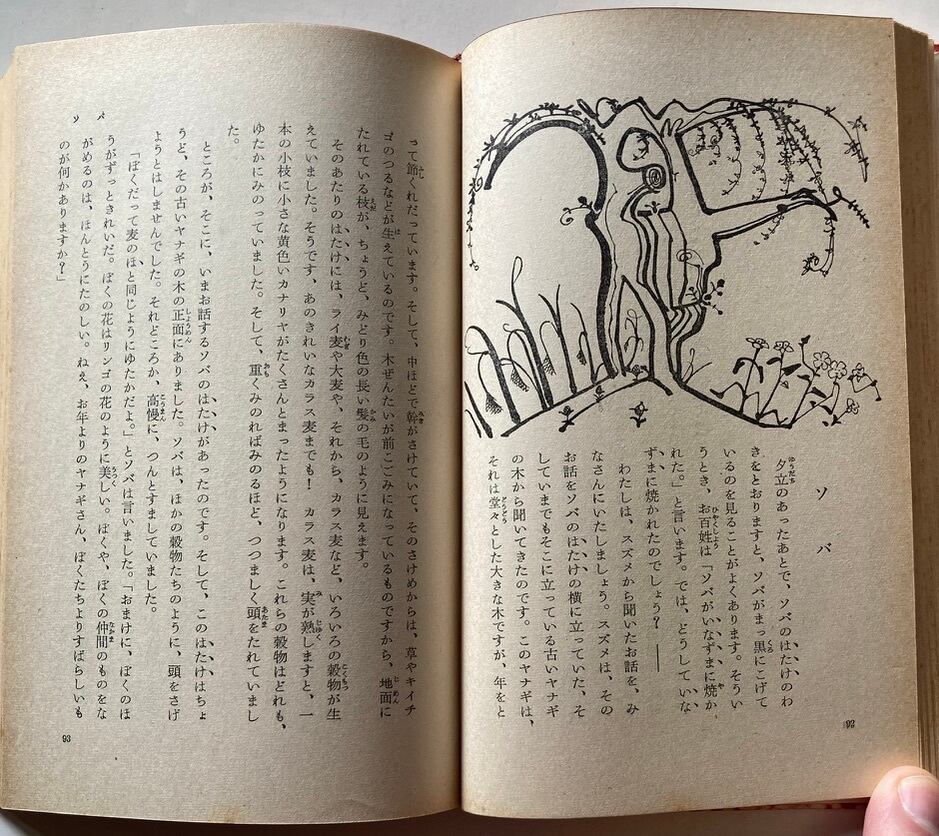 ソバ
夕立のあったあとで、ソバのはたけのわ
きをとおりますと、ソバがまっ黒にこげて
いるのを見ることがよくあります。そうい
うとき、お百姓は「ソバがいなずまに焼か
れた。」と言います。では、どうしていな
ずまに焼かれたのでしょう？――
わたしは、スズメから聞いたお話を、み
なさんにいたしましょう。スズメは、その
お話をソバのはたけの横に立っていた、そ
していまでもそこに立っている古いヤナギ
の木から聞いてきたのです。このヤナギは、
それは堂々とした大きな木ですが、年をと
92
って節くれだっています。そして、中ほどで幹がさけていて、そのさけめからは、草やキイチ
ゴのつるなどが生えているのです。木ぜんたいが前こごみになっているものですから、地面に
たれている枝が、ちょうど、みどり色の長い髪の毛のように見えます。
そのあたりのはたけには、ライ麦や大麦や、それから、カラス麦など、いろいろの穀物が生
えていました。そうです、あのきれいなカラス麦までも！　カラス麦は、実が熟しますと、一
本の小枝に小さな黄色いカナリヤがたくさんとまったようになります。これらの穀物はどれも、
ゆたかにみのっていました。そして、重くみのればみのるほど、つつましく頭をたれていまし
た。
ところが、そこに、いまお話するソバのはたけがあったのです。そして、このはたけはちょ
うど、その古いヤナギの木の正面にありました。ソバは、ほかの穀物たちのように、頭をさげ
ようとはしませんでした。それどころか、高慢に、つんとすましていました。
「ぼくだって麦のほと同じようにゆたかだよ。」とソバは言いました。「おまけに、ぼくのほ
うがずっときれいだ。ぼくの花はリンゴの花のように美しい。ぼくや、ぼくの仲間のものをな
がめるのは、ほんとうにたのしい。ねえ、お年よりのヤナギさん、ぼくたちよりすばらしいも
のが何かありますか？」
ソバ
93